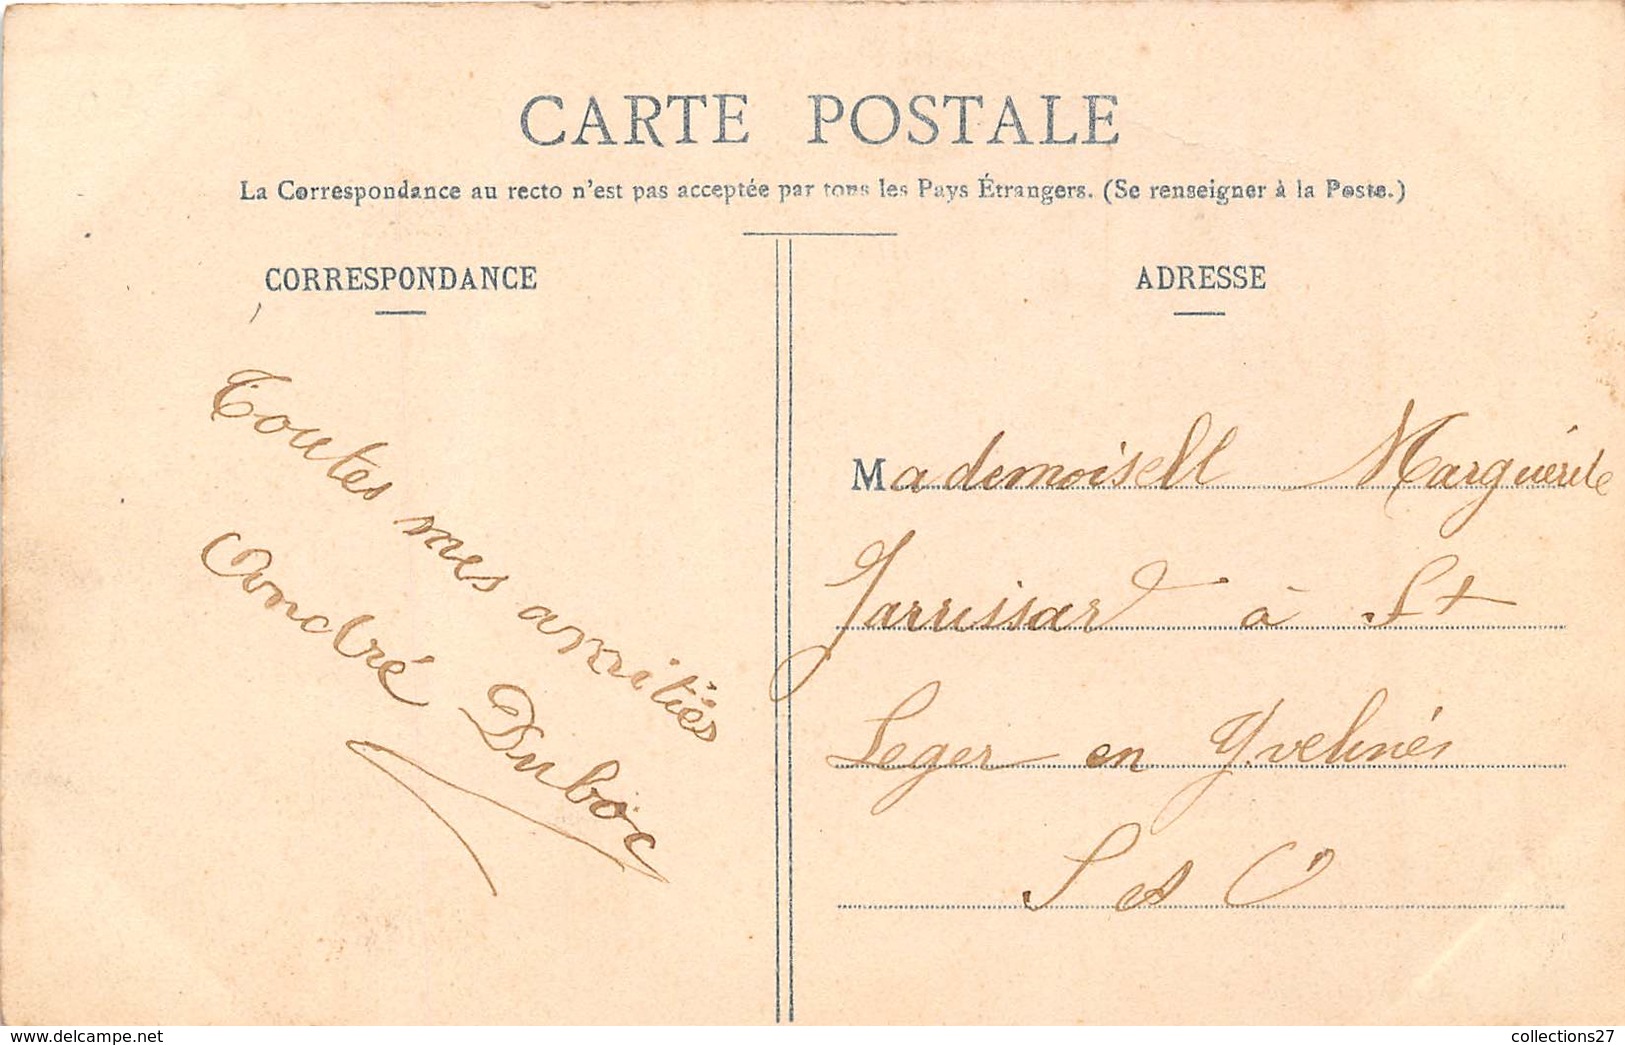 CARTE POSTALE
La Correspondance au recto n'est pas acceptée par tous les Pays Étrangers. (Se renseigner à la Poste.)
CORRESPONDANCE
Toutes mes amitiés
André Duboc
ADRESSE
Mademoisell Marguérite
Jarrissard à St
Leger en Yvelinés
S et O
www.delcampe.net
collections27